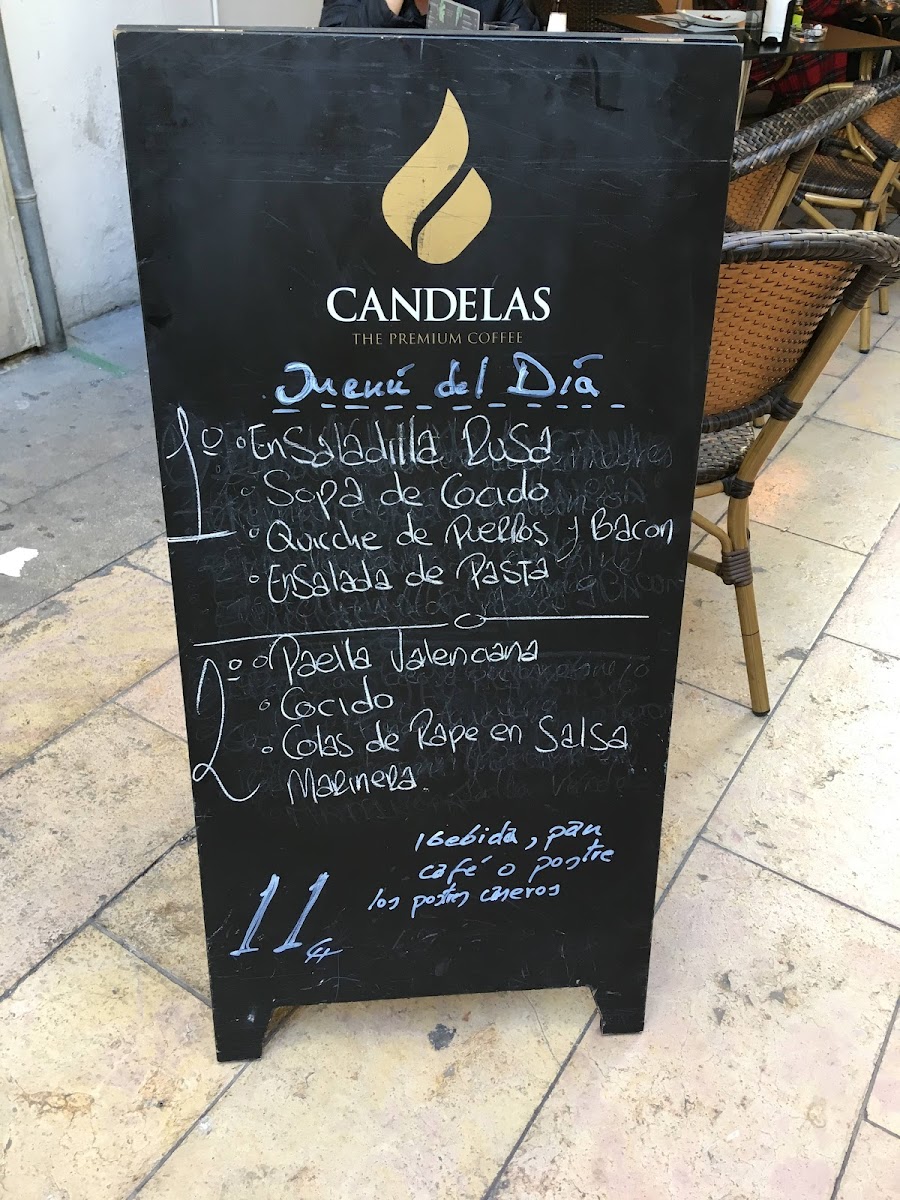 CANDELAS
THE PREMIUM COFFEE
Menú del Día
1º ∘ Ensaladilla Rusa
∘ Sopa de Cocido
∘ Quicche de Puerros y Bacon
∘ Ensalada de Pasta
2º ∘ Paella Valenciana
∘ Cocido
∘ Colas de Rape en Salsa
Marinera
1 bebida, pan
café o postre
los postres caseros
11 €